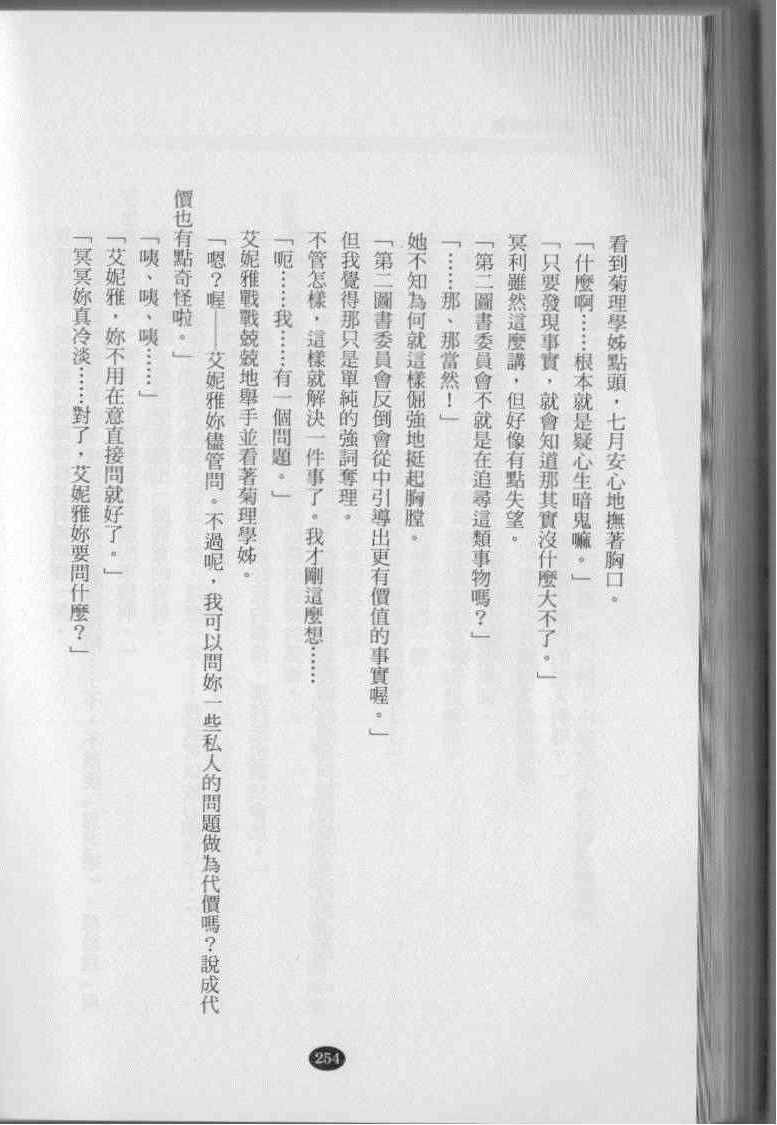 看到菊理學姊點頭，七月安心地撫著胸口。
「什麼啊……根本就是疑心生暗鬼嘛。」
「只要發現事實，就會知道那其實沒什麼大不了。」
冥利雖然這麼講，但好像有點失望。
「第二圖書委員會不就是在追尋這類事物嗎？」
「……那、那當然！」
她不知為何就這樣倔強地挺起胸膛。
「第二圖書委員會反倒會從中引導出更有價值的事實喔。」
但我覺得那只是單純的強詞奪理。
不管怎樣，這樣就解決一件事了。我才剛這麼想……
「呃……我……有一個問題。」
艾妮雅戰戰兢兢地舉手並看著菊理學姊。
「嗯？喔——艾妮雅妳儘管問。不過呢，我可以問妳一些私人的問題做為代價嗎？說成代
價也有點奇怪啦。」
「咦、咦、咦……」
「艾妮雅，妳不用在意直接問就好了。」
「冥冥妳真冷淡……對了，艾妮雅妳要問什麼？」
254